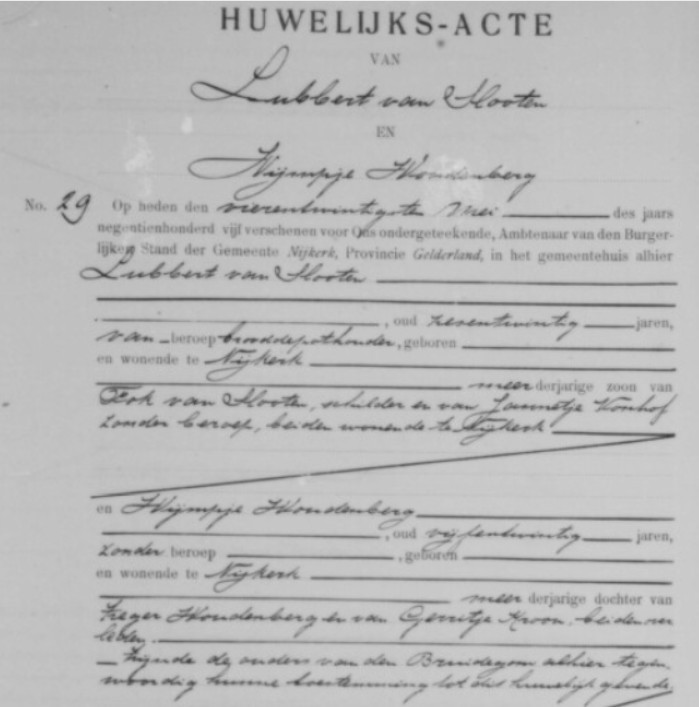 HUWELIJKS-ACTE
VAN
Lubbert van Slooten
EN
Wijmpje Woudenberg
No. 29 Op heden den vierentwintigsten Mei des jaars
negentienhonderd vijf verschenen voor Ons ondergeteekende, Ambtenaar van den Burger-
lijken Stand der Gemeente Nijkerk, Provincie Gelderland, in het gemeentehuis alhier
Lubbert van Slooten
, oud zevenentwintig jaren,
van beroep brooddepothouder, geboren
en wonende te Nijkerk
meerderjarige zoon van
van Slooten, schilder en van Jannetje Vonhof
zonder beroep, beiden wonende te Nijkerk
en Wijmpje Woudenberg
, oud vijfentwintig jaren,
zonder beroep , geboren
en wonende te Nijkerk
meerderjarige dochter van
Woudenberg en van Gerritje Kroon, beiden over
leden.
Zijnde de ouders van den Bruidegom alhier tegen
woordig hunne toestemming tot dit huwelijk gevende